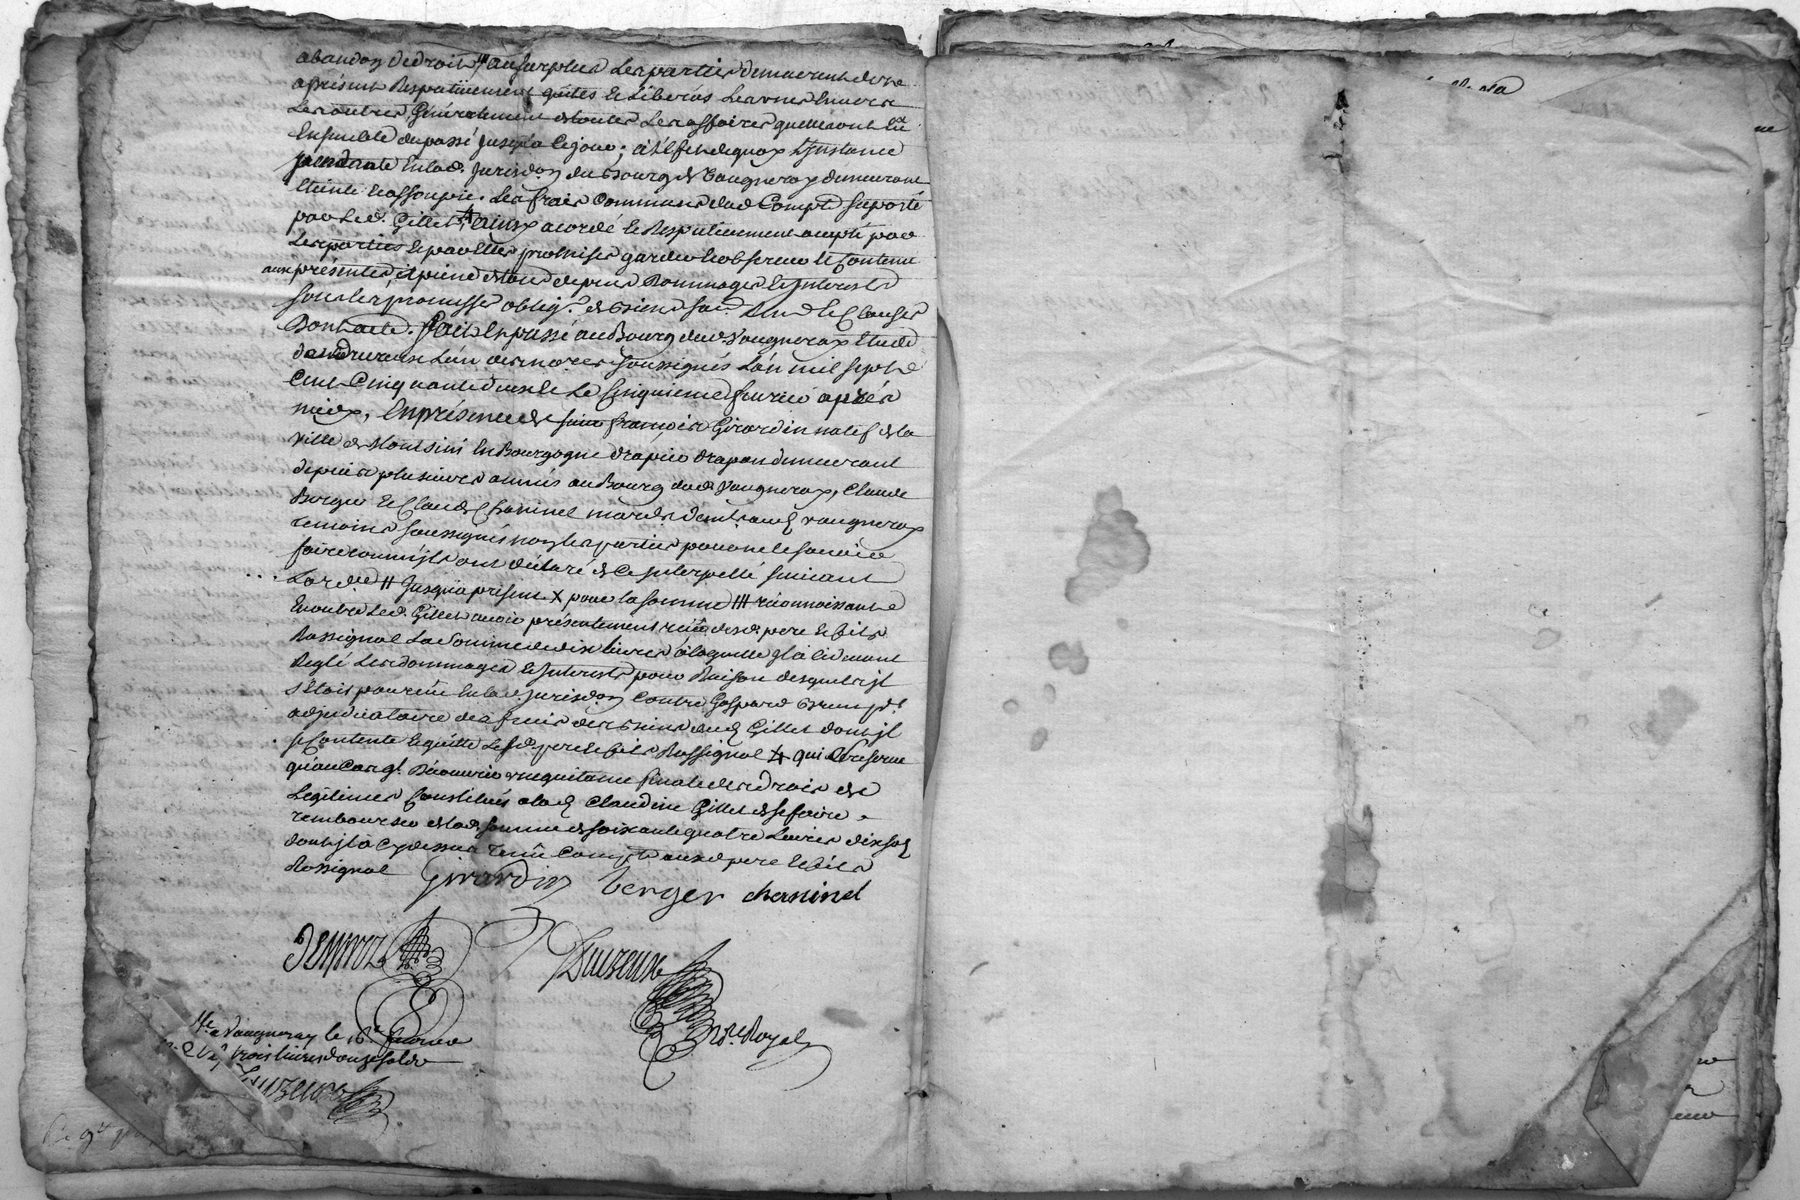 abandon de droit # au surplus les parties demeurent dors et
aprésent Respectivement quites et Libérés les unes Envers
Les autres Généralement de toutes les affaires quelles ont Eu
Ensemble du passé jusqu'a ce jour ; à l'Effet de quoy L'Instance
pendante En lad. Jurisd.on du Bourg de Vaugneray demeurant
Eteinte et assoupie. Les frais Communs dud Compte suporté
par led. Gillet ainsy acordé et Respectivement acepté par
Les parties et par Elles promis garder et observer le Contenu
aux présentes à peine de tous depens Dommages et Interests
sous les promesses oblig.ons de Biens sou. Ren.ons et Clauses
Dont acte. fait et passé au Bourg dud. Vaugneray Etude
de L'un des no.res soussignés L'an mil sept
Cent Cinquante deux et le Cinquieme fevrier après
midy, En présence de François Girardin natif de la
ville de Montsini En Bourgogne drapier drapan demeurant
depuis plusieurs années au Bourg dud. Vaugneray, Claude
Berger et Claude Chaninel march. dem.t aud. Vaugneray
temoins soussignés non les parties pour ne le savoir
faire comm'jls ont déclaré de ce Interpellé suivant
Lord.ce # jusqu'a présent X pour la somme ### reconnoissant
En outre led. Gillet avoir présentement reçu desd. pere et fils
Rossignol La Somme de dix livres à laquelle jls
Reglé Les dommages et Interests pour Raison desquels jl
s'Etoit pourvû En lad. Jurisd.on Contre Gaspard Brun
adjudicataire des fruits des Biens dud. Gillet dont jl
se Contente et quitte lesd. pere et fils Rossignol # qui
qu'au Cas
Légitimes Constitués a lad. Claudine Gillet de se faire
rembourser de lad. somme de soixante quatre Livres dix sols
dont jl a Cy dessus Tenû Compte auxd. pere et fils
Rossignol Girardin berger chaninel
Duzeuxe
n.re Royal
a Vaugneray le 16e fevrier
trois livres douze sols